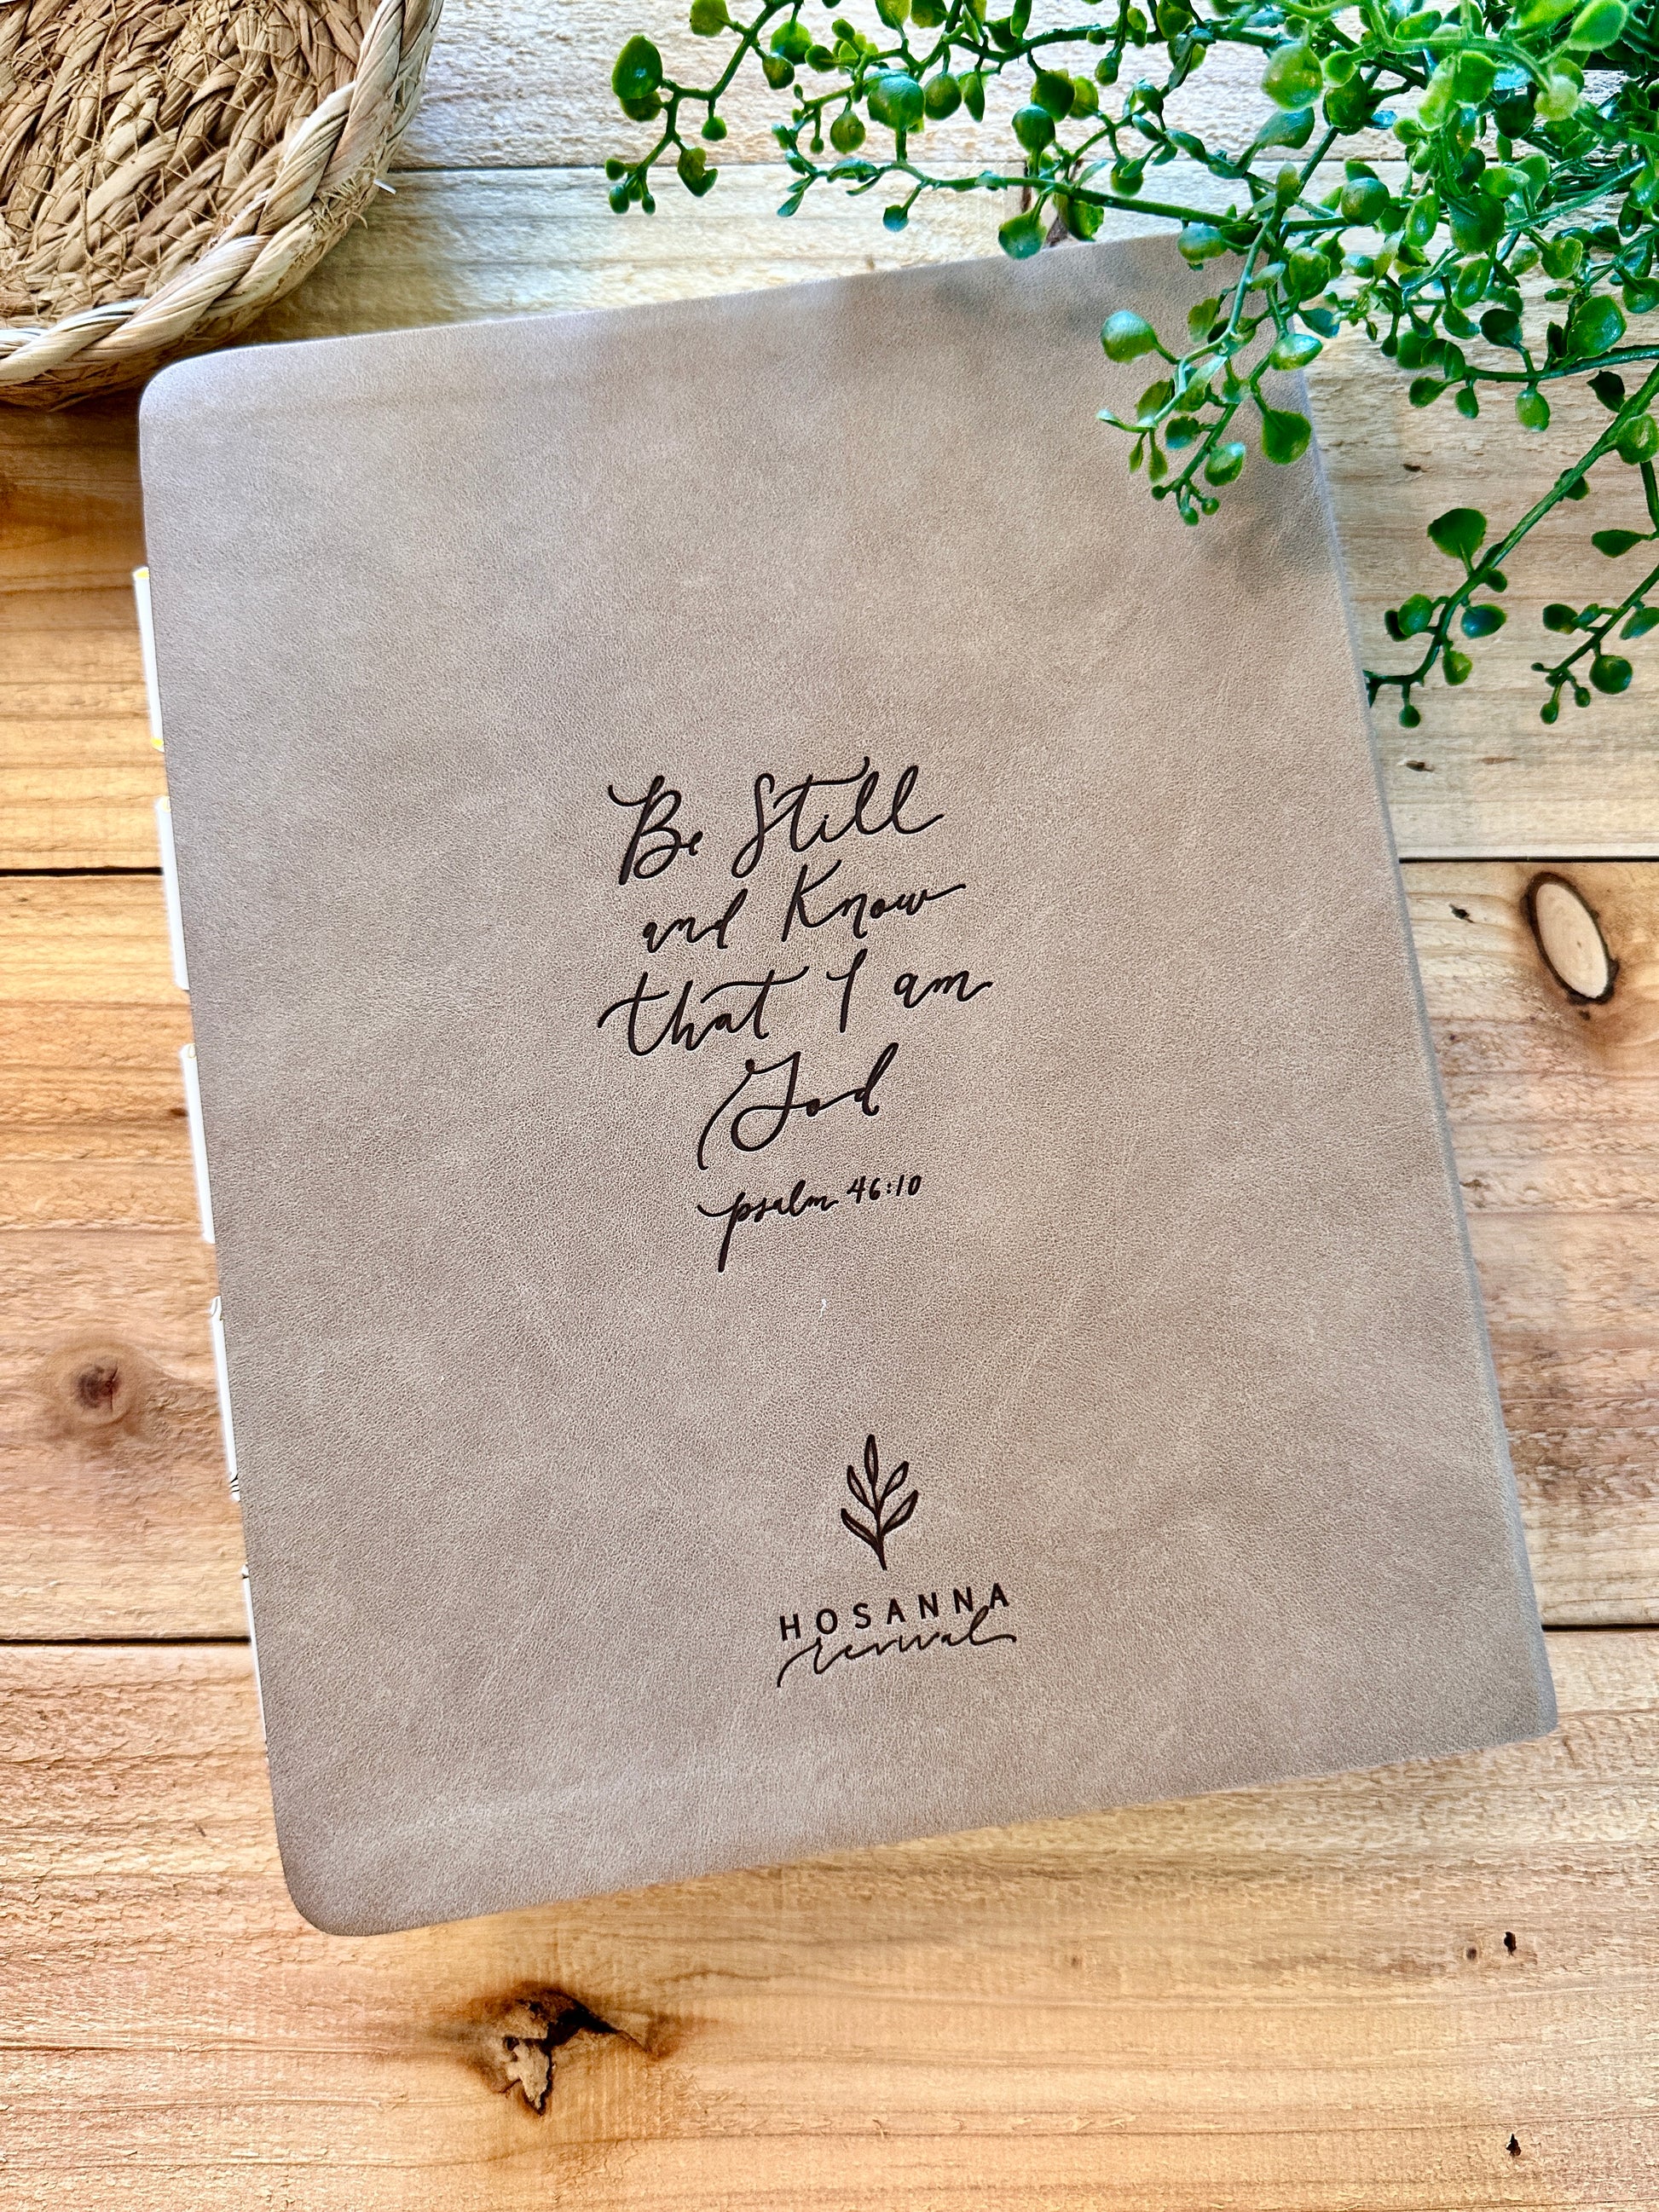 Be Still
and Know
that I am
God
psalm 46:10
HOSANNA
revival